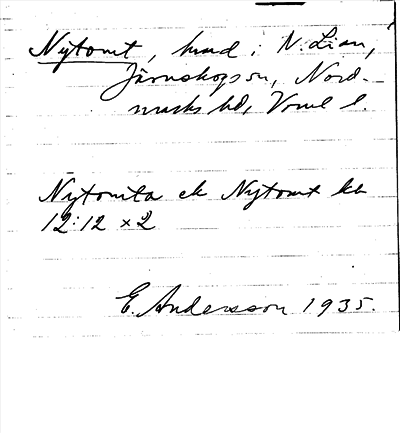 Nytomt, hmd i N. Lian,
Järnskogs sn, Nord-
marks hd, Vrml l.
Nytomta ek Nytomt kb
12:12 x2
E. Andersson 1935.